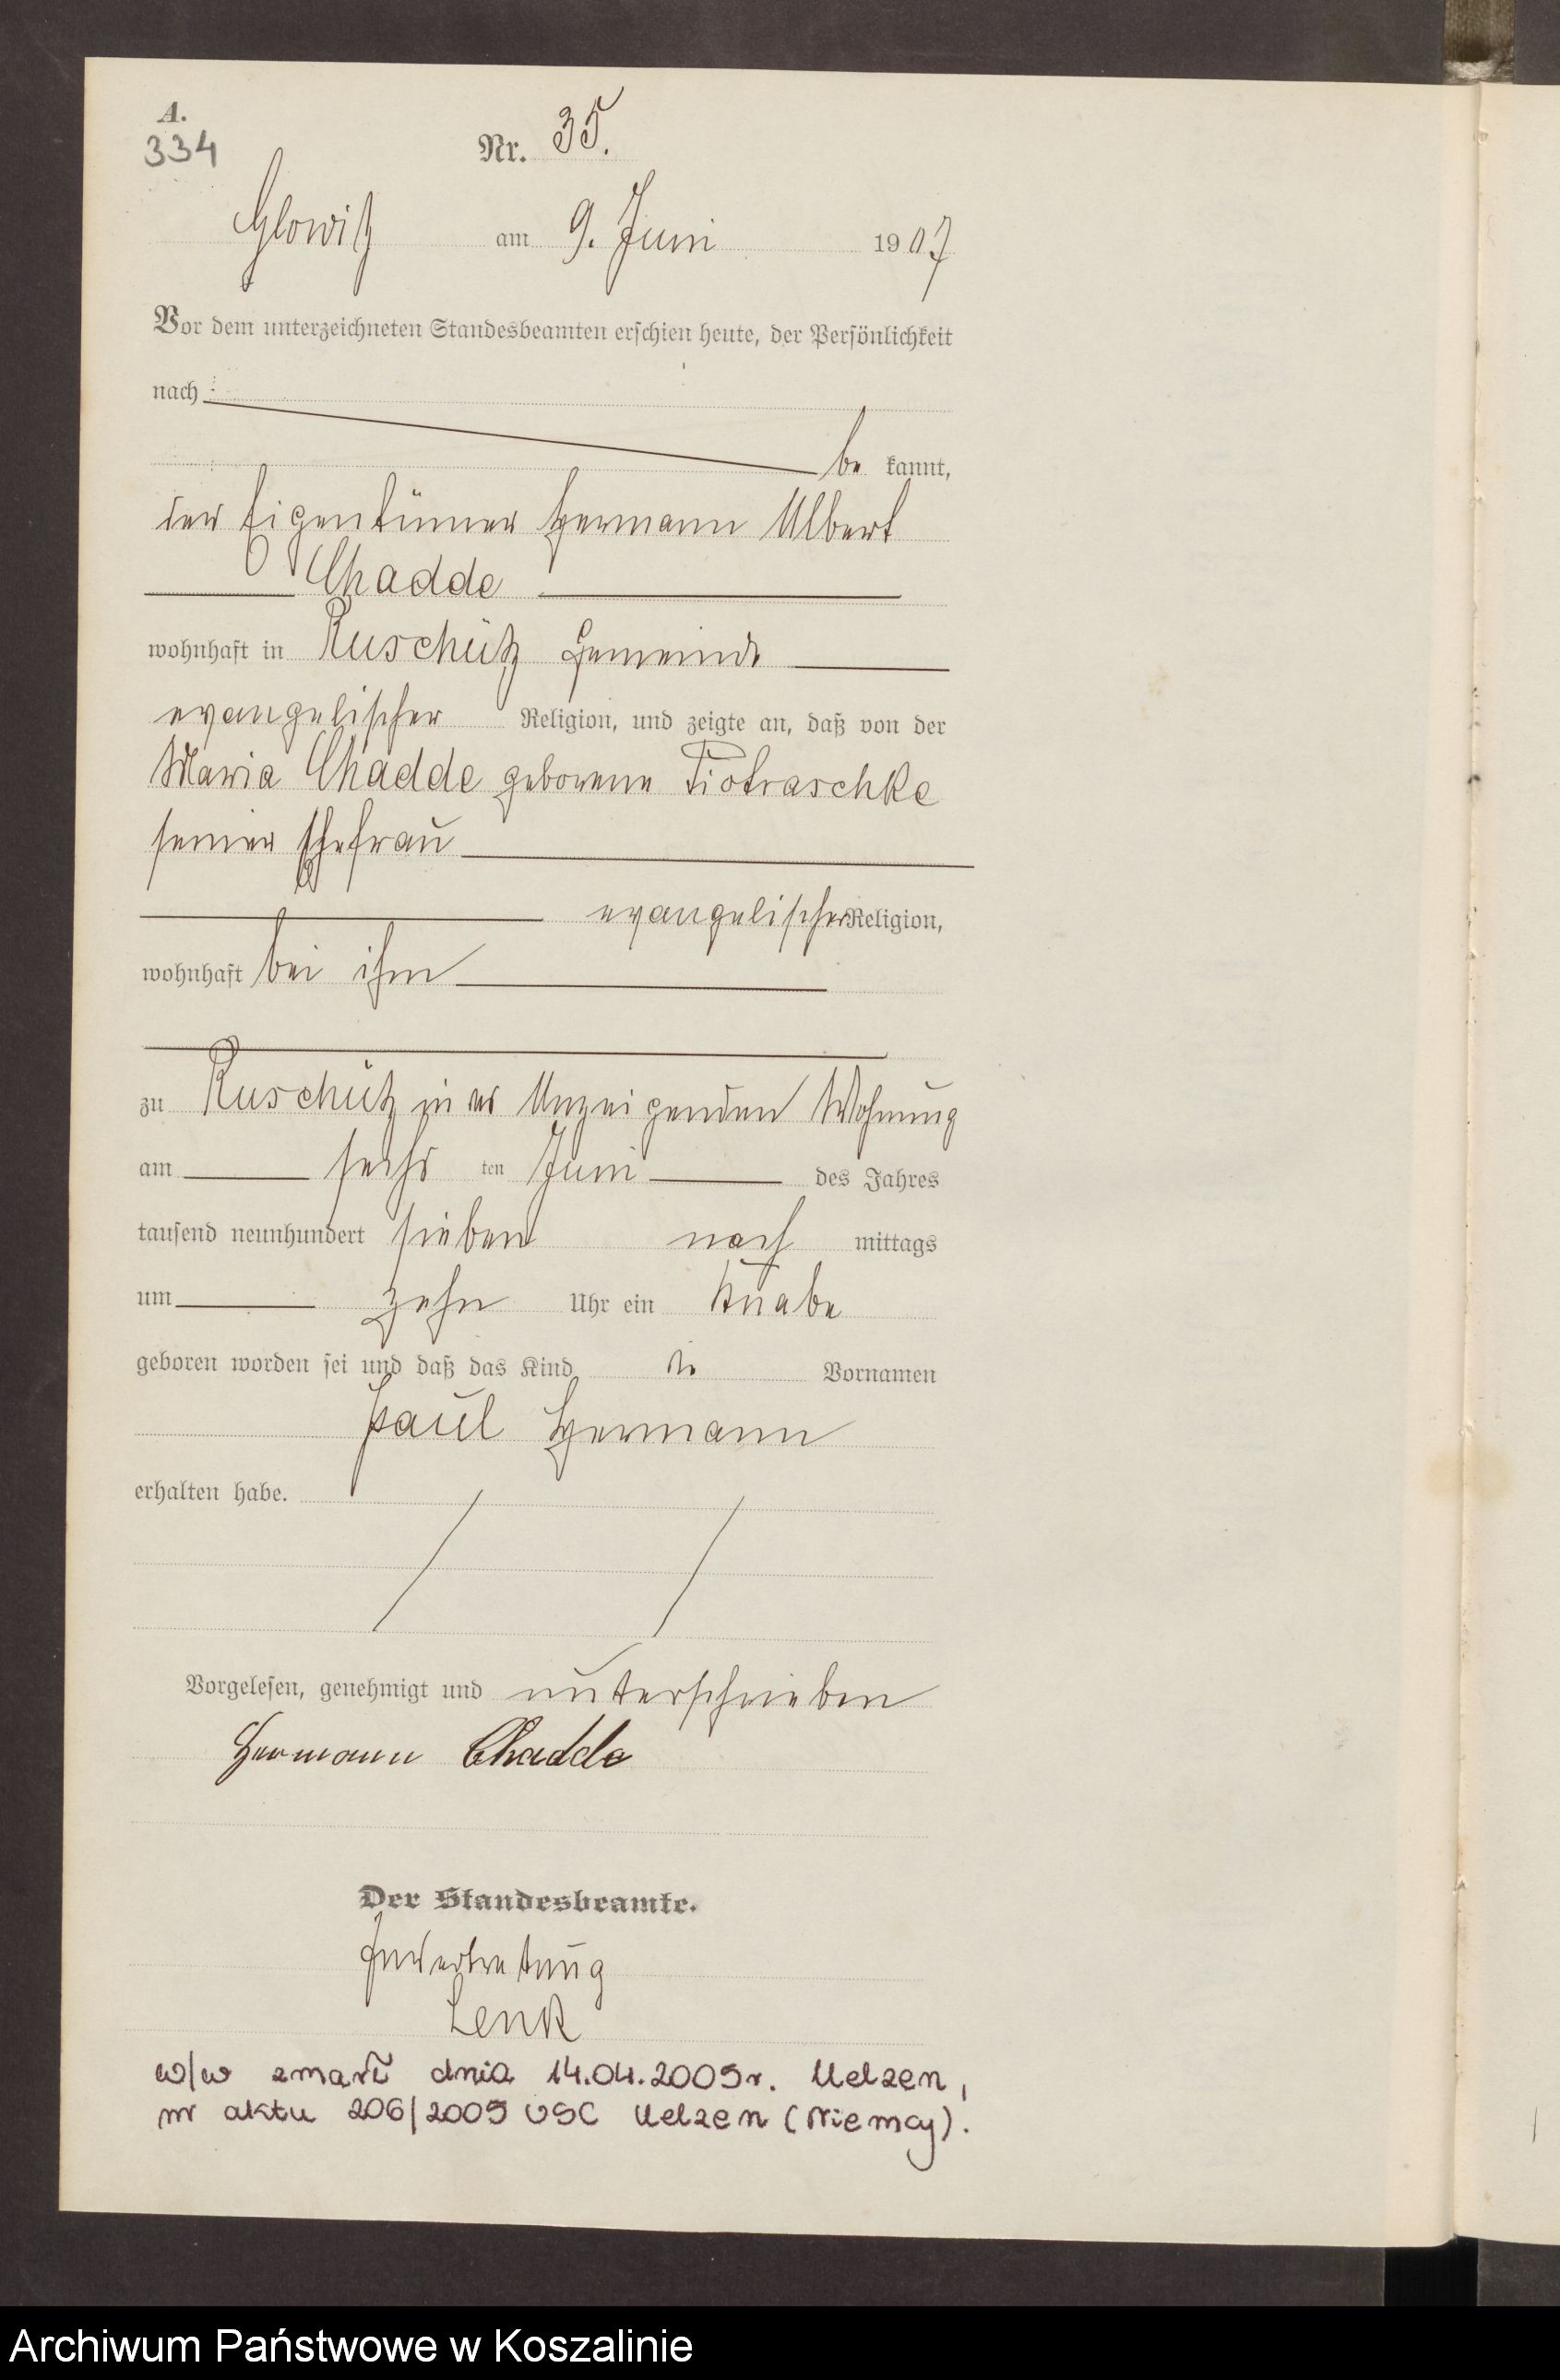 A.
334
Nr. 35.
Glowitz am 9. Juni 1907
Vor dem unterzeichneten Standesbeamten erschien heute, der Persönlichkeit
nach
be kannt,
der Eigentümer Hermann Albert
Chadde
wohnhaft in Ruschütz Gemeinde
evangelischer Religion, und zeigte an, daß von der
Maria Chadde geborene Piotraschke
seiner Ehefrau
evangelischer Religion,
wohnhaft bei ihm
zu Ruschütz in des Anzeigenden Wohnung
am sechs ten Juni des Jahres
tausend neunhundert sieben nach mittags
um zehn Uhr ein Knabe
geboren worden sei und daß das Kind die Vornamen
Paul Hermann
erhalten habe.
Vorgelesen, genehmigt und unterschrieben
Hermann Chadde
Der Standesbeamte.
In Vertretung
Lenk
w/w zmarł dnia 14.04.2009r. Uelzen,
nr aktu 206/2009 USC Uelzen (Niemcy).
Archiwum Państwowe w Koszalinie